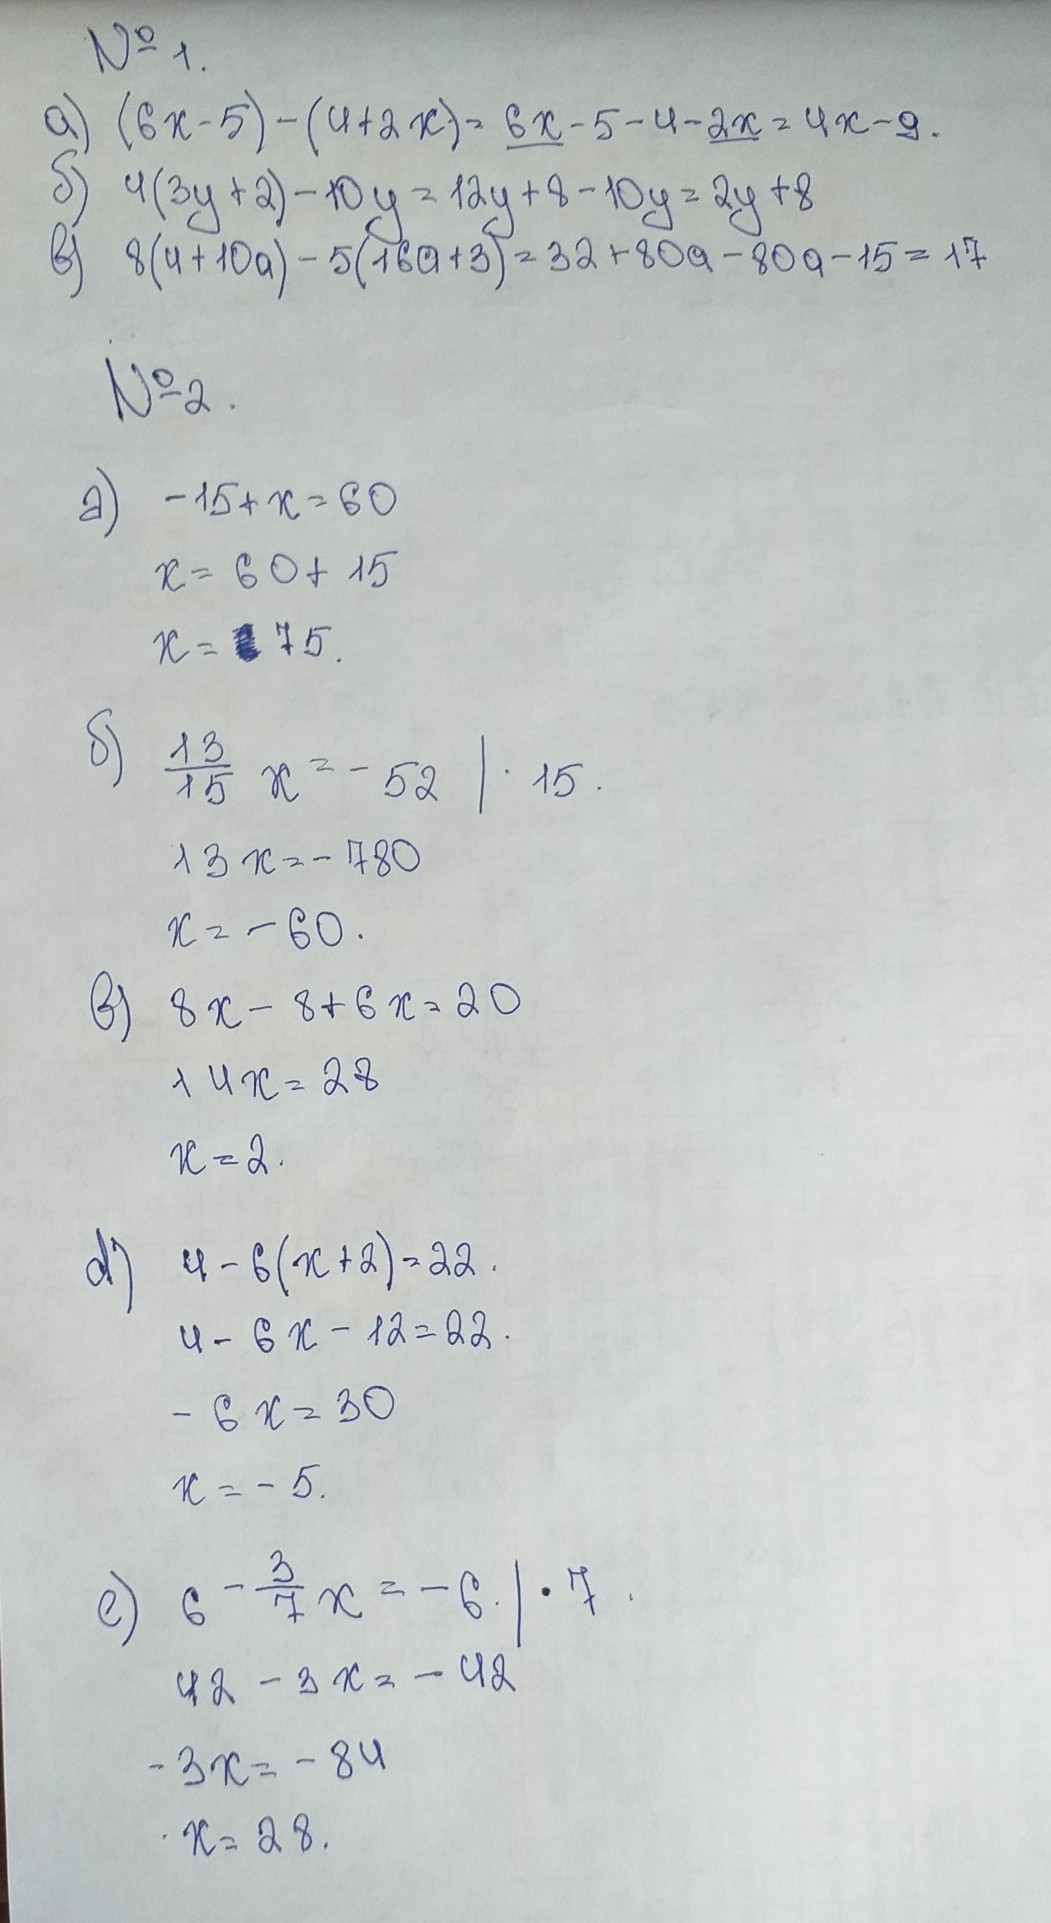 № 1.
а) (6x-5)-(4+2x)= 6x-5-4-2x=4x-9.
б) 4(3y+2)-10y=12y+8-10y=2y+8
в) 8(4+10a)-5(16a+3)=32+80a-80a-15=17
№2.
а) -15+x=60
x= 60+15
x= 75.
б) 13/15 x = -52 | · 15.
13x=-780
x=-60.
в) 8x-8+6x=20
14x=28
x=2.
д) 4-6(x+2)=22.
4-6x-12=22.
-6x=30
x=-5.
е) 6 - 3/7 x = -6. | · 7.
42-3x=-42
-3x=-84
x=28.